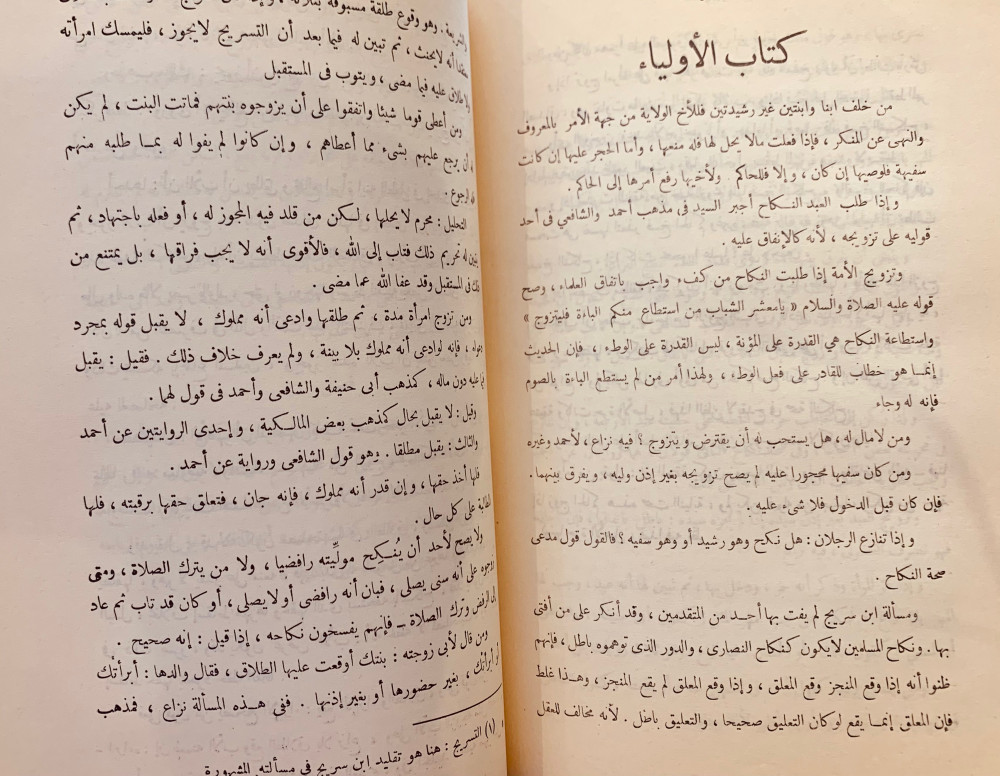 كتاب الأولياء
من خلف ابنا وابنتين غير رشيدتين فللأخ الولاية من جهة الأمر بالمعروف
والنهى عن المنكر ، فإذا فعلت مالا يحل لها فله منعها ، وأما الحجر عليها إن كانت
سفيهة فلوصيها إن كان ، وإلا فللحاكم ولأخيها رفع أمرها إلى الحاكم .
و إذا طلب العبد النكاح أجبر السيد فى مذهب أحمد والشافعى فى أحد
قوليه على تزويجه ، لأنه كالإنفاق عليه .
وتزويج الأمة إذا طلبت النكاح من كفء واجب باتفاق العلماء ، وصح
قوله عليه الصلاة والسلام « يامعشر الشباب من استطاع منكم الباءة فليتزوج »
واستطاعة النكاح هي القدرة على المؤنة ، ليس القدرة على الوطء ، فإن الحديث
إنمـا هو خطاب للقادر على فعل الوطء ، ولهذا أمر من لم يستطع الباءة بالصوم
فإنه له وجاء
ومن لامال له ، هل يستحب له أن يقترض و يتزوج ؟ فيه نزاع ، لأحمد وغيره
ومن كان سفيها محجورا عليه لم يصح تزويجه بغير إذن وليه ، ويفرق بينهما .
فإن كان قبل الدخول فلا شىء عليه .
و إذا تنازع الرجلان : هل نكح وهو رشيد أو وهو سفيه ؟ فالقول قول مدعى
صحة النكاح .
ومسألة ابن سريج لم يفت بها أحـد من المتقدمين ، وقد أنكر على من أفتى
بها . ونكاح المسلمين لايكون كنكاح النصارى ، والدور الذى توهموه باطل ، فإنهم
ظنوا أنه إذا وقع المنجز وقع المعلق ، و إذا وقع المعلق لم يقع المنجز ، وهـذا غلط
فإن المعلق إنمـا يقع لو كان التعليق صحيحا ، والتعليق باطل . لأنه مخالف للعقل
والشريعة . وهو وقوع طلقة مسبوقة بثلاثة ،
أنه لايحنث ، ثم تبين له فيما بعد أن التسريج لايجوز ، فليمسك امرأته
ولا طلاق عليه فيما مضى ، ويتوب فى المستقبل
ومن أعطى قوما شيئا واتفقوا على أن يزوجوه بنتهم فماتت البنت ، لم يكن
له أن يرجع عليهم بشىء مما أعطاهم ، وإن كانوا لم يفوا له بمـا طلبه منهم
فله الرجوع .
التحليل : محرم لايحلها ، لـكن من قلد فيه المجوز له ، أو فعله باجتهاد ، ثم
تبين له تحريم ذلك فتاب إلى الله ، فالأقوى أنه لا يجب فراقها ، بل يمتنع من
ذلك فى المستقبل وقد عفا الله عما مضى .
ومن تزوج امرأة مدة ، ثم طلقها وادعى أنه مملوك ، لا يقبل قوله بمجرد
دعواه ، فإنه لوادعى أنه مملوك بلا بينة ، ولم يعرف خلاف ذلك . فقيل : يقبل
فيما عليه دون ماله ، كمذهب أبى حنيفة والشافعى وأحمد فى قول لهما .
وقيل : لا يقبل بحال كمذهب بعض المالـكية ، و إحدى الروايتين عن أحمد
والثالث : يقبل مطلقا . وهو قول الشافعى ورواية عن أحمد .
فلها أخذ حقها ، وإن قدر أنه مملوك ، فإنه جان ، فتعلق حقها برقبته ، فلها
المطالبة على كل حال .
ولا يصح لأحد أن يُنـكِح موليَّته رافضيا ، ولا من يترك الصلاة ، ومتى
زوجوه على أنه سنى يصلى ، فبان أنه رافضى أو لايصلى ، أو كان قد تاب ثم عاد
إلى الرفض وترك الصلاة ــ فإنهم يفسخون نكاحه ، إذا قيل : إنه صحيح .
ومن قال لأبى زوجته : بنتك أوقعت عليها الطلاق ، فقال والدها : أبرأتك
أبرأتك ، بغير حضورها أو بغير إذنها . ففى هـذه المسألة نزاع ، فمذهب
(١) التسريج : هنا هو تقليد ابن سريج فى مسألته المشهورة